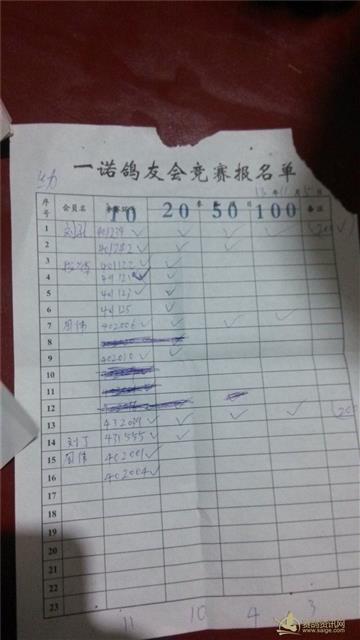 一诺鸽友会竞赛报名单
13年11月5日
序号 会员名 10 20 50 100 备注
1 401239 ✓ ✓ ✓ ✓
2 401282 ✓ ✓ ✓
3 401122 ✓ ✓
4 ✓ ✓
5 401123 ✓ ✓
6 401125 ✓
7 周伟 402006 ✓ ✓ ✓ ✓
8
9 402010 ✓ ✓
10
11
12
13 432039 ✓ ✓ ✓ ✓
14 刘丁 431555 ✓ ✓
15 周伟 402001 ✓
16 402004 ✓
17
18
19
20
21
22
23
11 10 4 3
赛鸽资讯网
www.saige.com